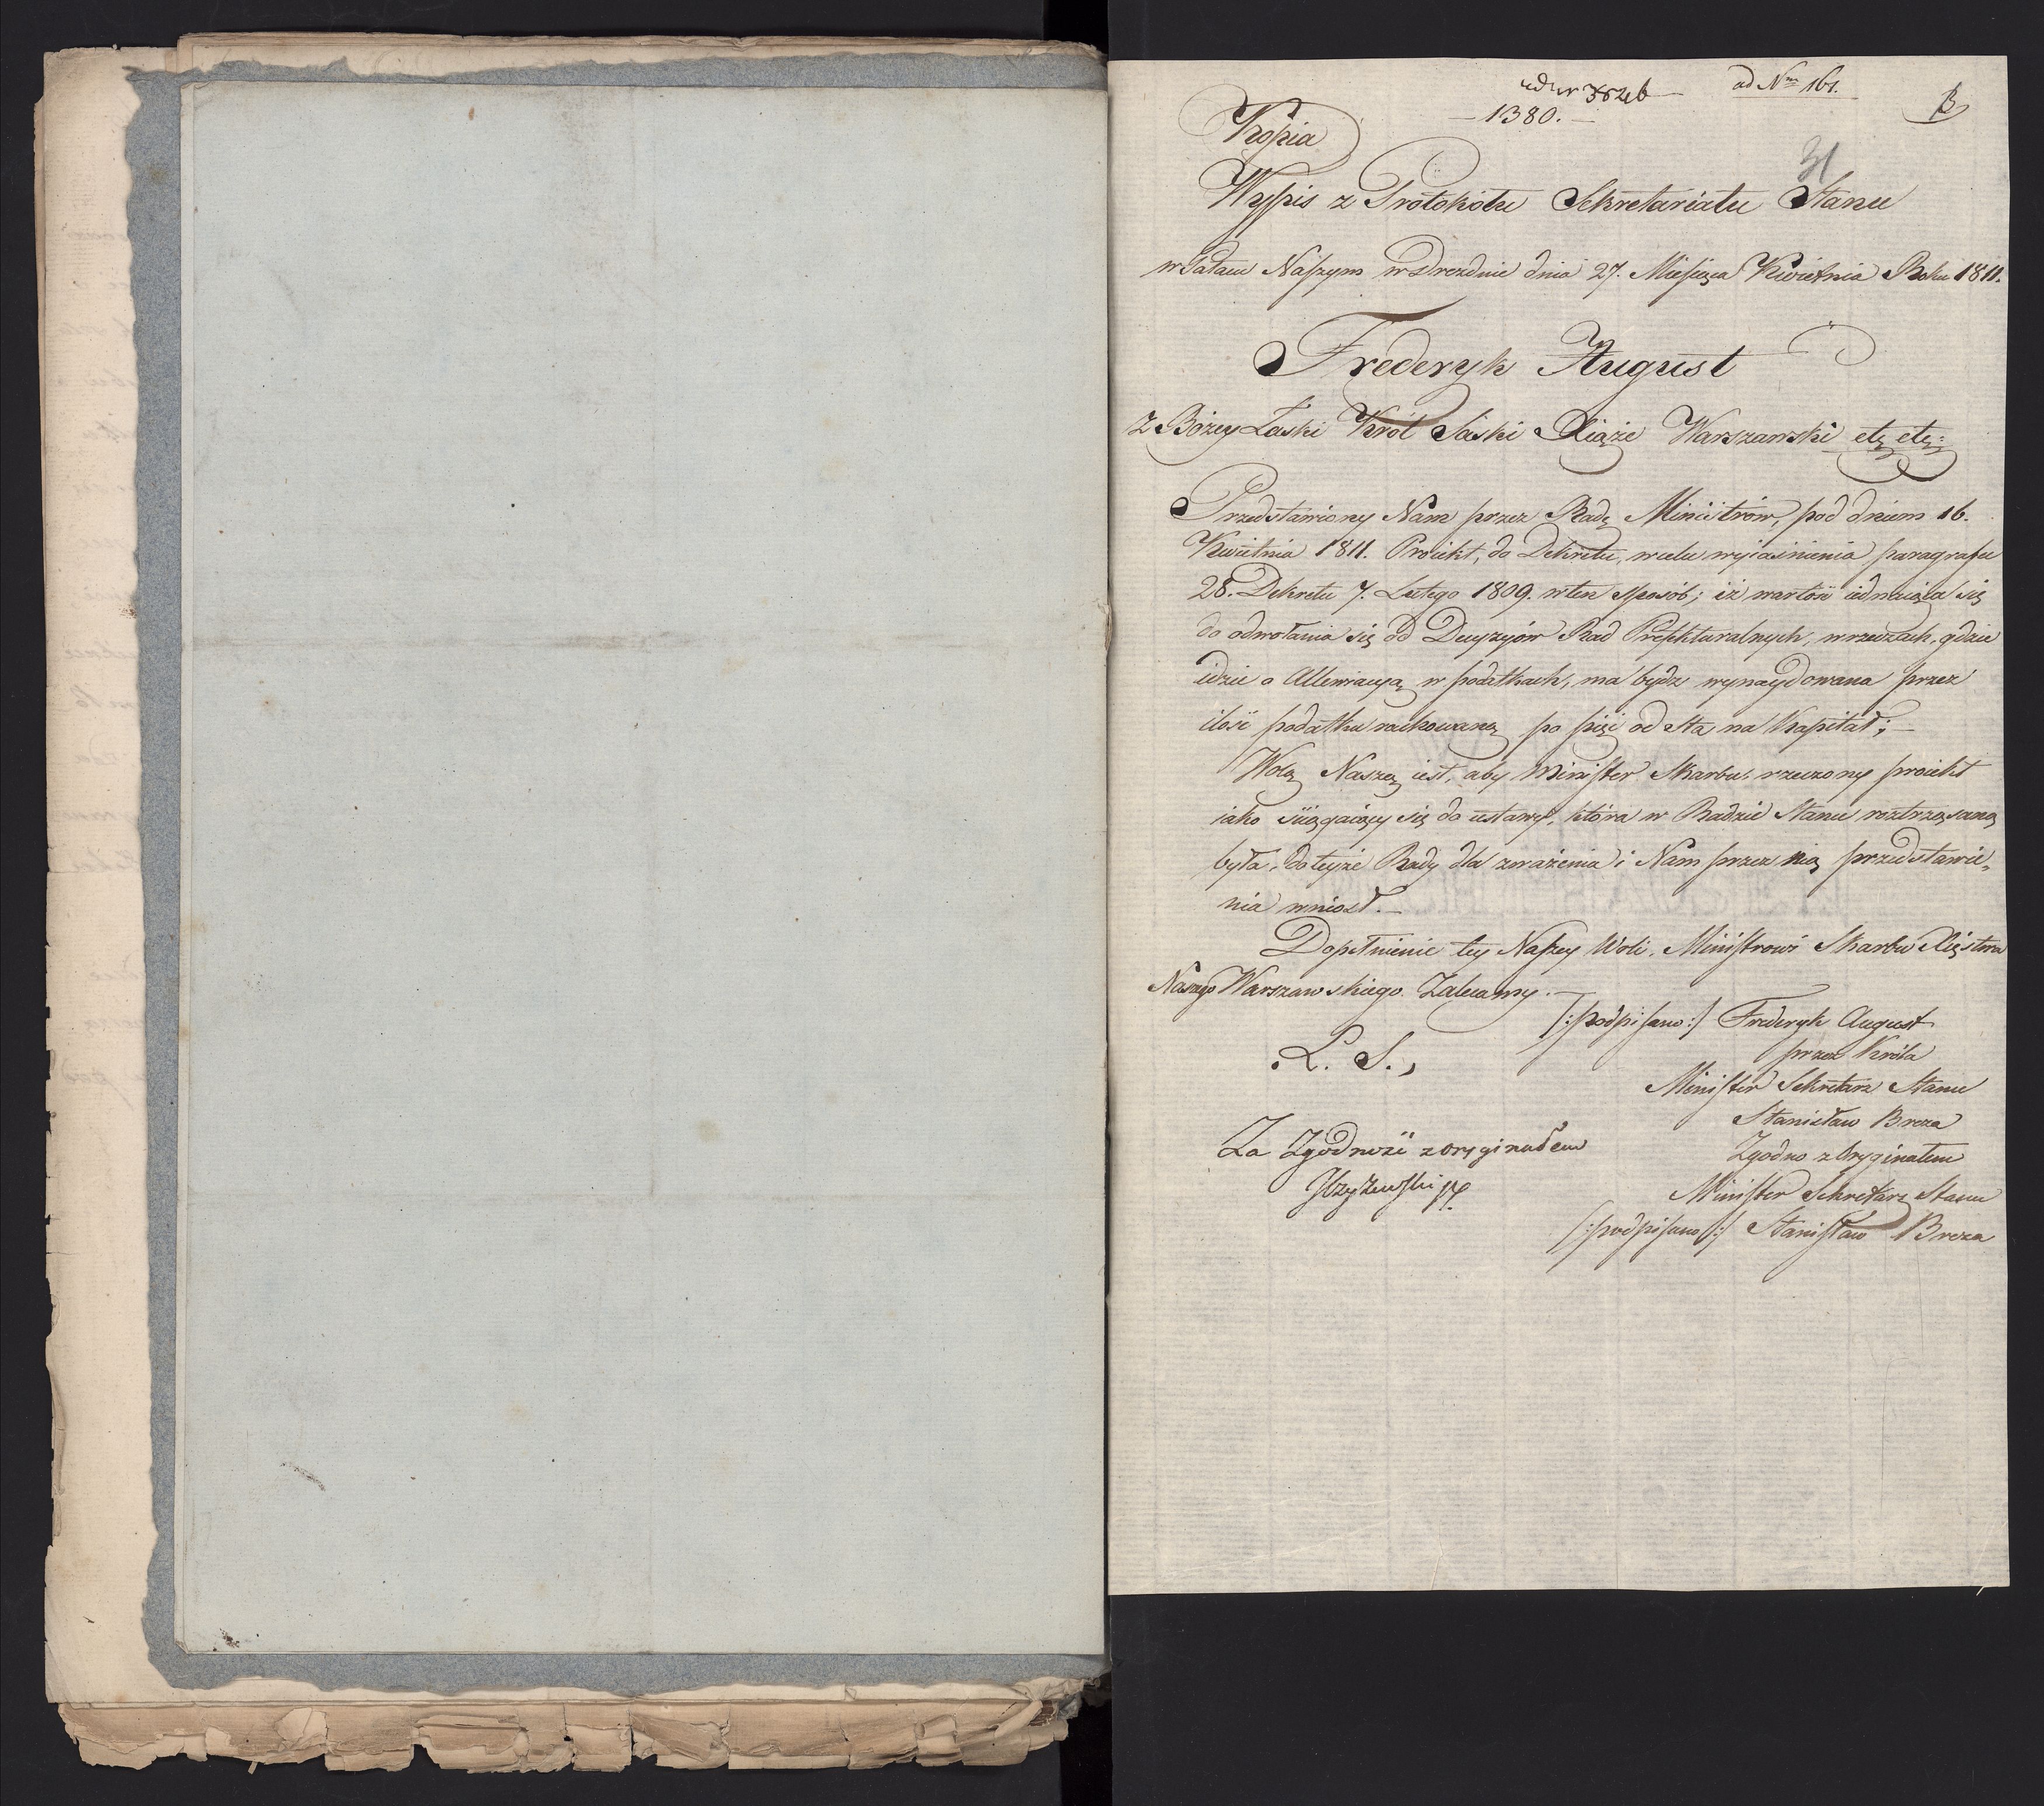 ad Nm 161.
B
1380.
Kopia
31
Wypis z Protokółu Sekretariatu Stanu
w Pałacu Naszym w Dreznie dnia 27. Miesiąca Kwietnia Roku 1811.
Frederyk August
z Bożey Łaski Król Saski Xiąże Warszawski etc etc:
Przedstawiony Nam przez Radę Ministrów, pod dniem 16.
Kwietnia 1811. Proiekt, do Dekretu, w celu wyiaśnienia paragrafu
28. Dekretu 7. Lutego 1809. w ten sposób; iż wartość iednaiąca się
do odwołania się od Decyzyów Rad Prefekturalnych, w rzeczach, gdzie
idzie o Allewiacyą w podatkach, ma bydz wynaydowana przez
ilość podatku rachowaną po pięć od Sta na Kapitał; —
Wolą Naszą iest, aby Minister Skarbu, rzeczony proiekt
iako ściągaiący się do ustawy, która w Radzie Stanu roztrząsaną
była, do teyże Rady dla zważenia i Nam przez nią przedstawie-
nia wniosł. —
Dopełnienie tey Naszey Woli, Ministrowi Skarbu Xięstwa
Naszego Warszawskiego Zalecamy. —
/:podpisano:/ Frederyk August
przez Króla
L. S.
Minister Sekretarz Stanu
Stanisław Breza
Za Zgodność z oryginałem
Zgodno z Oryginałem
Minister Sekretarz Stanu
/:podpisano:/ Stanisław Breza